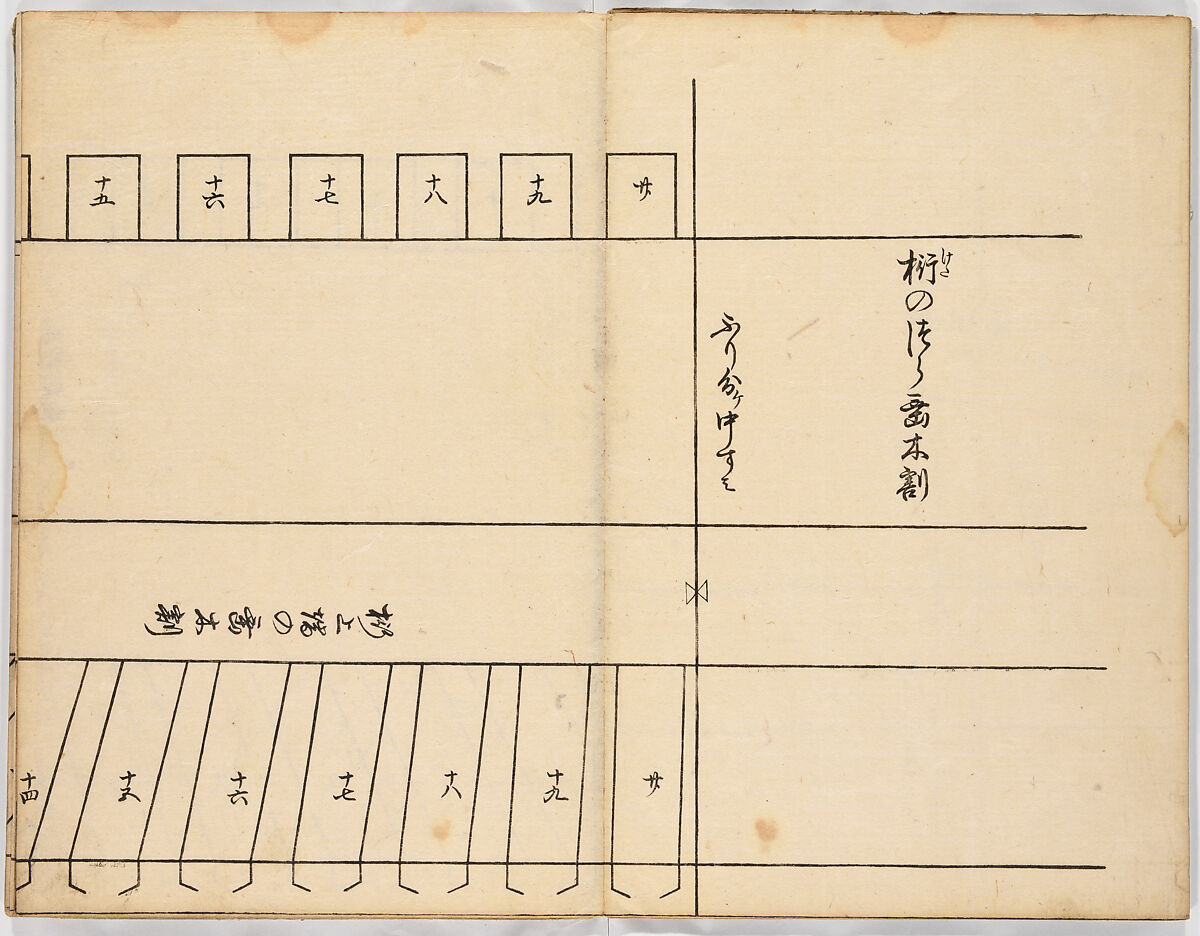 桁のはしら垂木割
けた
ふり分ヶ中すミ
廿
十九
十八
十七
十六
十五
上端の垂木割
廿
十九
十八
十七
十六
十五
十四